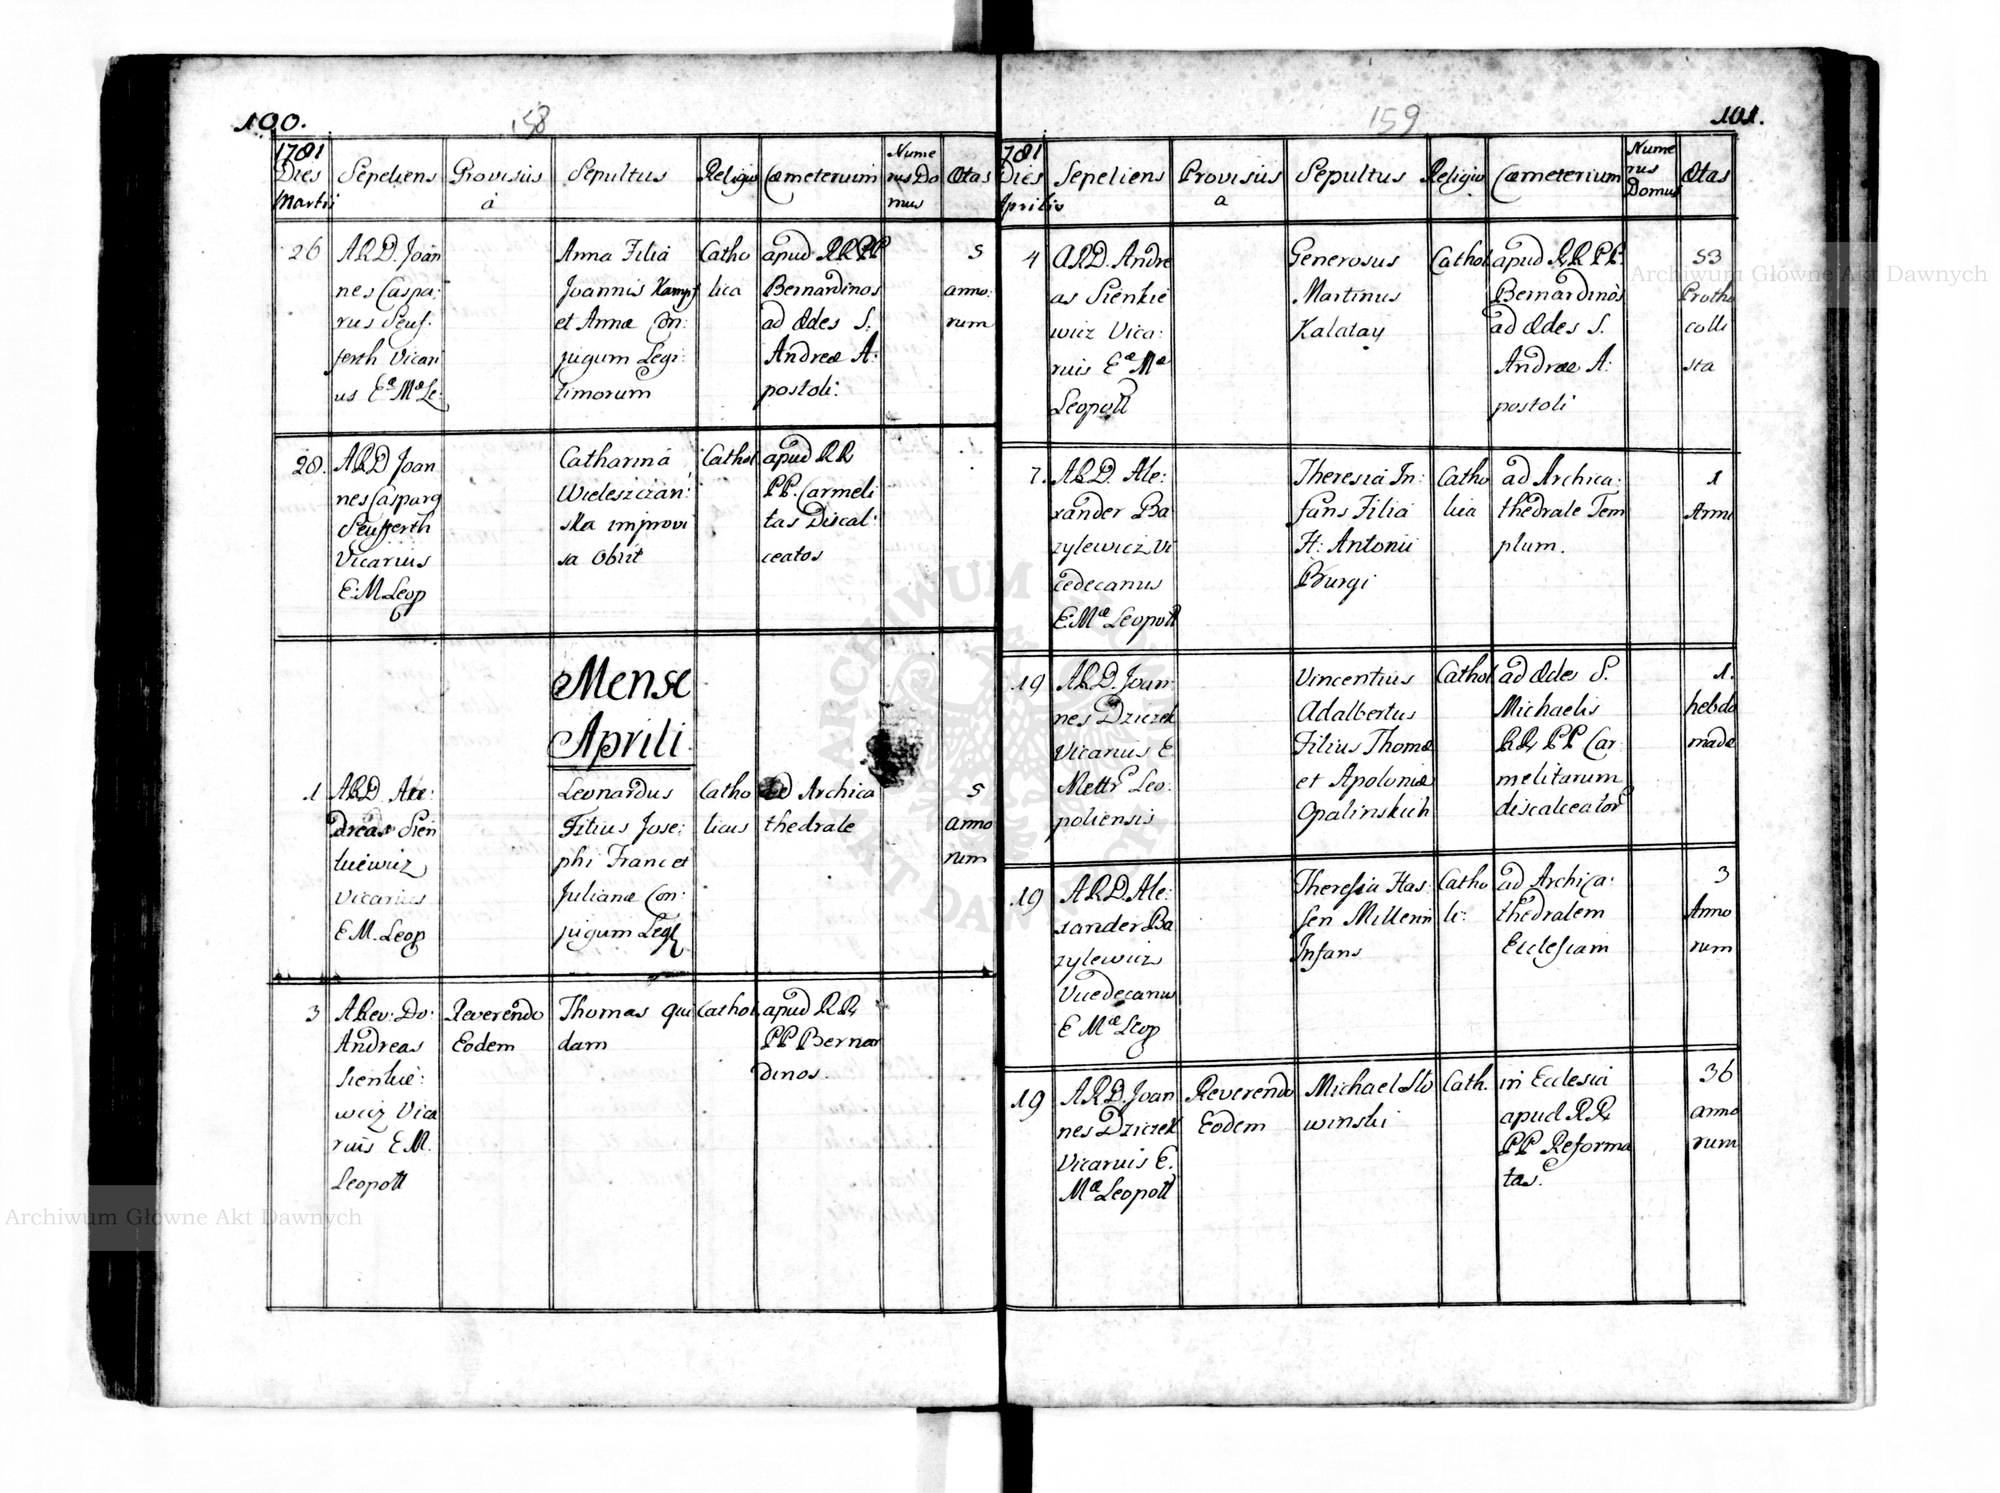 100.
158
1781
Dies
Martii
Sepeliens
Provisus
à
Sepultus
Religio
Cæmeterium
Nume
rus Do
mus
Ætas
26
A R D. Joan
nes Caspa:
rus Seuf:
ferth Vicari
us Eæ Mæ Le:
Anna Filia
Joannis Kampf
et Annæ Con:
jugum Legi:
timorum
Catho
lica
apud RR PP
Bernardinos
ad Ædes S.
Andreæ A:
postoli:
5
anno:
rum
28.
A R D Joan
nes Casparg
Seufferth
Vicarius
E: M Leop
Catharina
Wieleszczan:
ska improvi
sa obiit
Cathol
apud RR
PP. Carmeli
tas Discal:
ceatos
Mense
Aprili.
1
A R D.
dreas Sien
kiewicz
Vicarius
E M. Leop
Leonardus
Filius Jose:
phi Franc et
Julianæ Con:
jugum Legl
Catho
licus
ad Archica
thedrale
5
anno
rum
3
A Rev: Do:
Andreas
Sienkie:
wicz Vica
rius E M.
Leopoll
Reverendo
Eodem
Thomas qui
dam
Cathol
apud RR
PP Bernar
dinos.
159
101.
1781
Dies
Aprilis
Sepeliens
Provisus
a
Sepultus
Religio
Cæmeterium
Nume
rus
Domus
Ætas
4
A R D. Andre
as Sienkie
wicz Vica:
rius Eæ Mæ
Leopoll
Generosus
Martinus
Kalatay
Cathol
apud RR PP.
Bernardinos
ad Ædes S.
Andreæ A:
postoli
53
Protho
colli
sta
7.
A R D. Ale:
xander Ba
zylewicz Vi
cedecanus
E. Mæ Leopoll
Theresia In:
fans Filia
H: Antonii
Burgi
Catho
lica
ad Archica:
thedrale Tem
plum.
1
Anni
19
A R D. Joan
nes Dziczek
Vicarius E.
Mettr Leo:
poliensis
Vincentius
Adalbertus
Filius Thomæ
et Apoloniæ
Opalinskich
Cathol
ad Ædes S.
Michaelis
RR PP Car
melitarum
discalceator
1.
hebdo
madæ
19
A R D. Ale:
xander Ba
zylewicz
Vicedecanus
E Mæ Leop
Theresia Has
sen Millerin
Infans
Catho
li:
ad Archica:
thedralem
Ecclesiam
3
Anno
rum
19
A R D. Joan
nes Dziczek
Vicarius E.
Mæ Leopoll
Reverendo
Eodem
Michael Slo
winski
Cath.
in Ecclesia
apud RR
PP Reforma
tas.
36
anno
rum
Archiwum Główne Akt Dawnych
Archiwum Główne Akt Dawnych